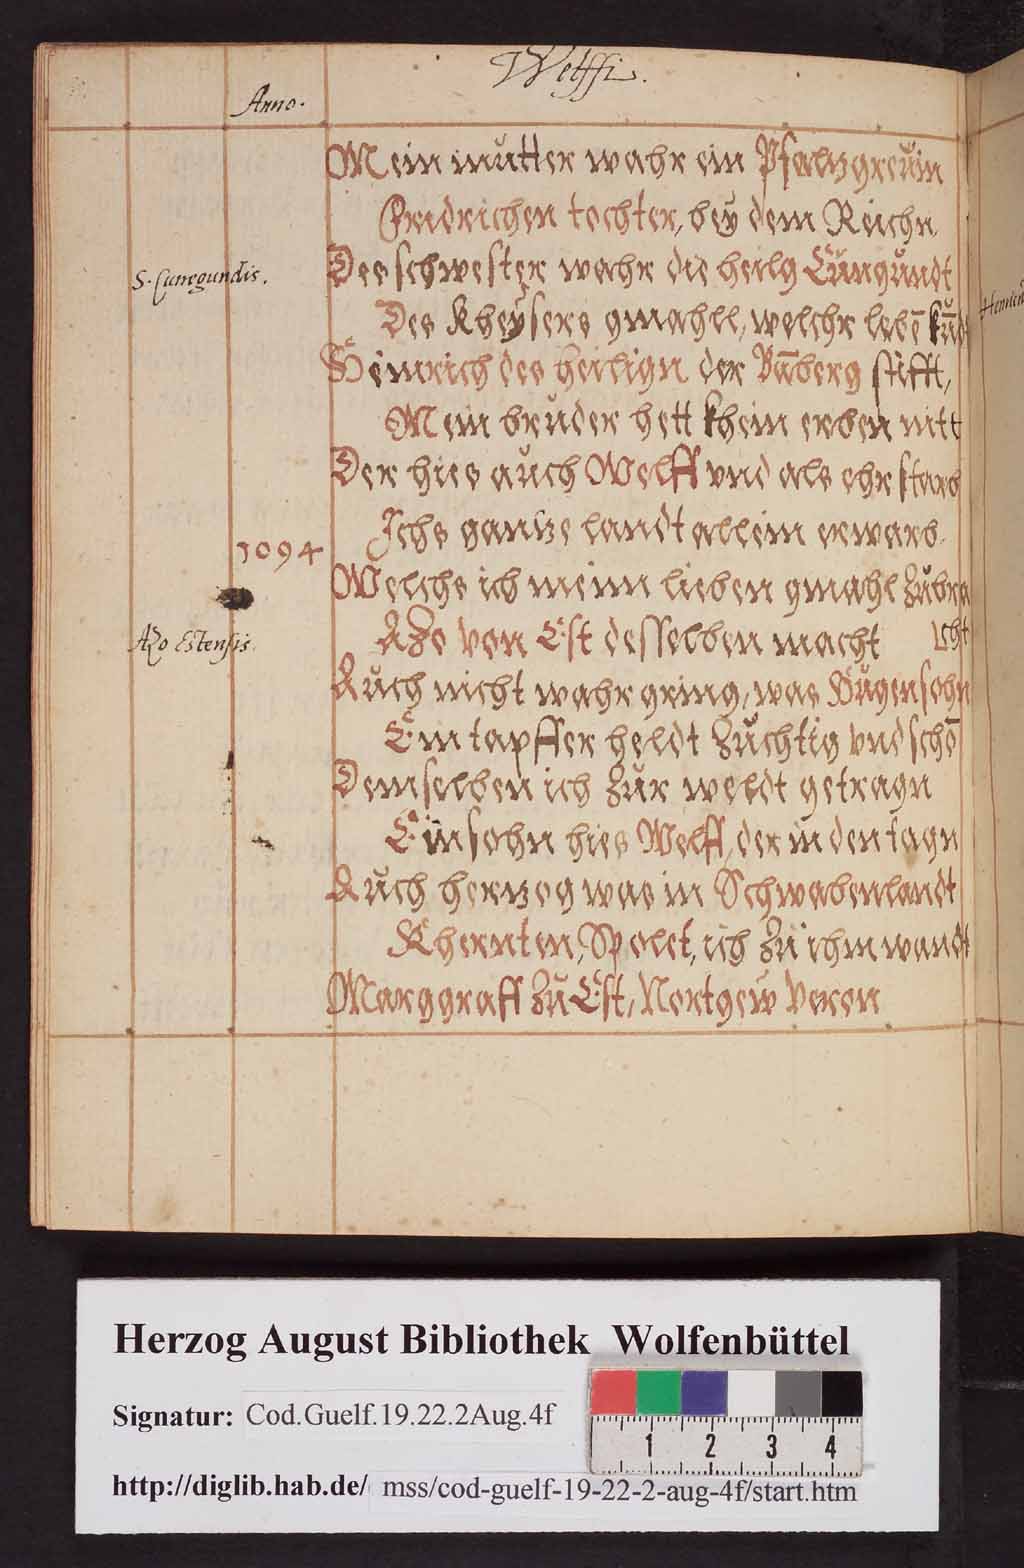 Welffi.
Anno.
Mein mutter wahr ein Pfaltzgreuin
Fridrichen tochter, bey dem Reichn.
S. Cunegundis.
Des schwester wahr die heilg Cungundt
Des Kheysers gmahll, welchr lebē kūdt
Heinrich des heilign der Bāberg stifft,
Mein bruder hett khein erben nitt
Der hies auch Welff vnd als ehr starb
Ichs gantze landt allein erwarb.
1094
Welchs ich meinn lieben gmahl zubra
cht
Azo Estensis.
Azo von Est desselben macht
Auch nicht wahr gring, was Hugen sohn
Ein tapffer heldt zuchtig vnd schō
Demselben ich zur weldt getragn
Ein sohn hies Welff, der in den tagn
Auch hertzog was in Schwabenlandt
Khernten, Spolet, ich zu ihm wandt
Marggraff zu Est, Nortgew Veron
Herzog August Bibliothek Wolfenbüttel
Signatur: Cod.Guelf.19.22.2Aug.4f
1 2 3 4
http://diglib.hab.de/ mss/cod-guelf-19-22-2-aug-4f/start.htm